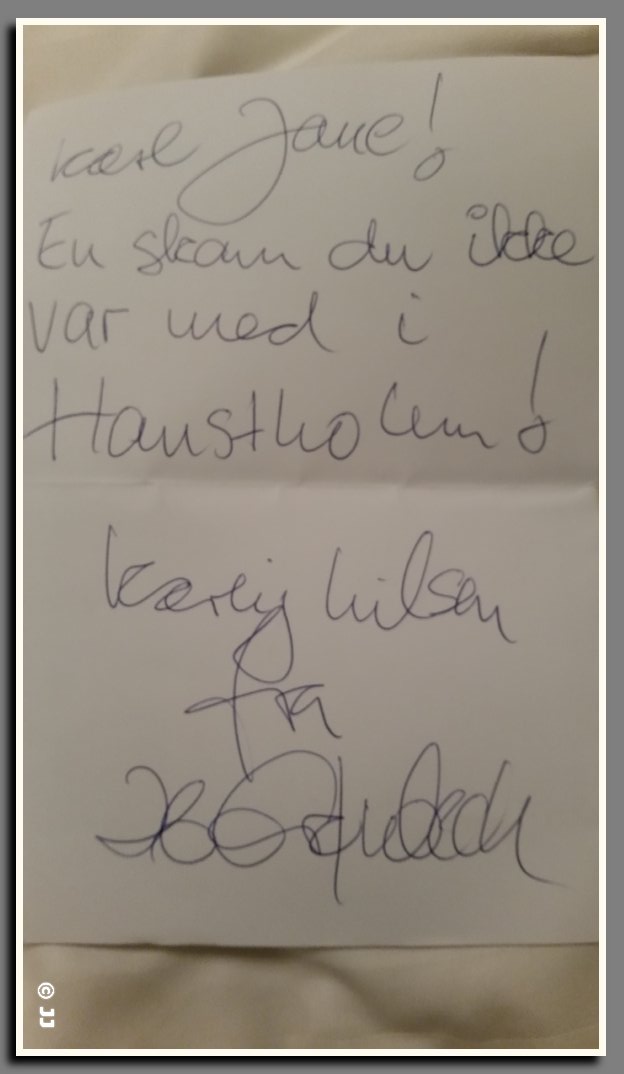 Kære Jane!
En skam du ikke
var med i
Hanstholm!
Kærlig hilsen
fra
© JJ